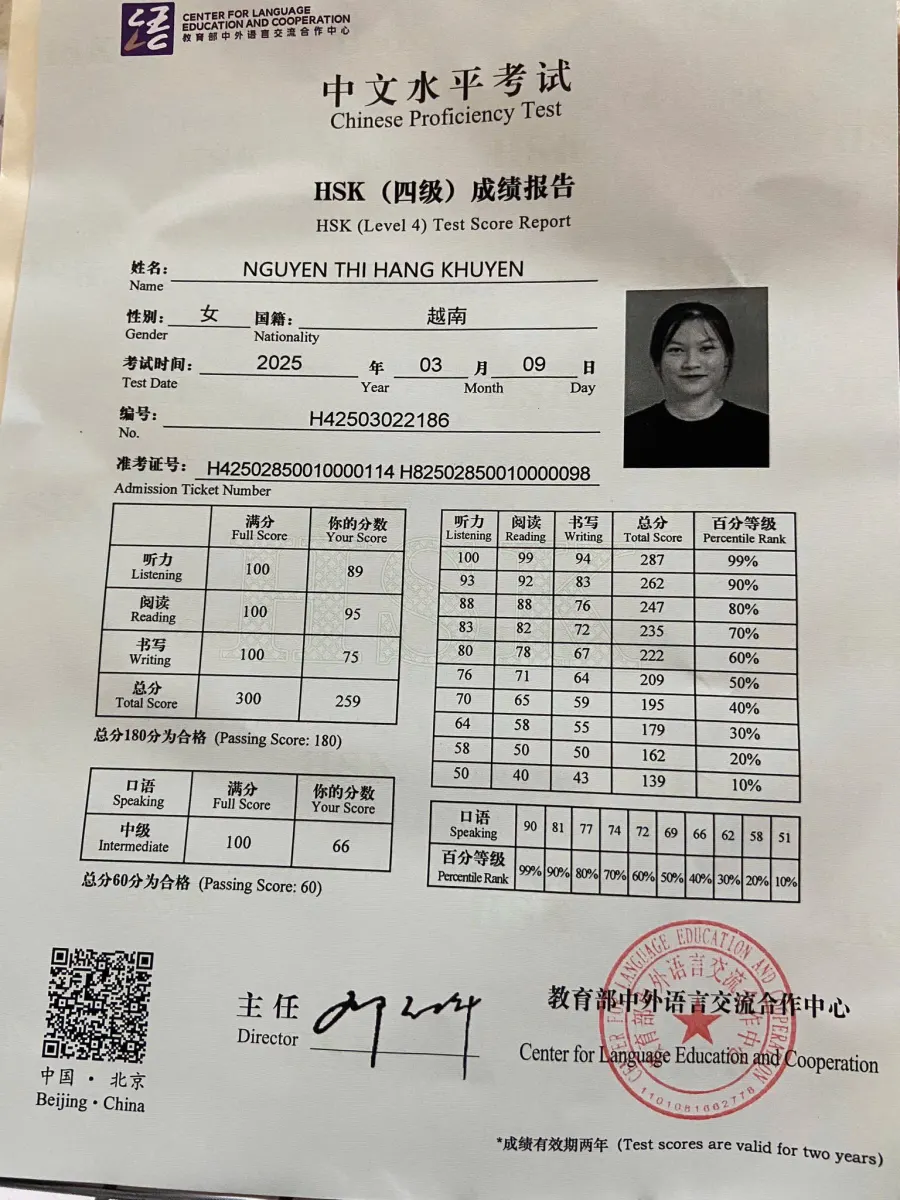 CENTER FOR LANGUAGE
EDUCATION AND COOPERATION
教育部中外语言交流合作中心
中文水平考试
Chinese Proficiency Test
HSK（四级）成绩报告
HSK (Level 4) Test Score Report
姓名: NGUYEN THI HANG KHUYEN
Name
性别: 女 国籍: 越南
Gender Nationality
考试时间: 2025 年 03 月 09 日
Test Date Year Month Day
编号: H42503022186
No.
准考证号: H42502850010000114 H82502850010000098
Admission Ticket Number
满分 你的分数
Full Score Your Score
听力 100 89
Listening
阅读 100 95
Reading
书写 100 75
Writing
总分 300 259
Total Score
总分180分为合格 (Passing Score: 180)
听力 阅读 书写 总分 百分等级
Listening Reading Writing Total Score Percentile Rank
100 99 94 287 99%
93 92 83 262 90%
88 88 76 247 80%
83 82 72 235 70%
80 78 67 222 60%
76 71 64 209 50%
70 65 59 195 40%
64 58 55 179 30%
58 50 50 162 20%
50 40 43 139 10%
口语 满分 你的分数
Speaking Full Score Your Score
中级 100 66
Intermediate
总分60分为合格 (Passing Score: 60)
口语 90 81 77 74 72 69 66 62 58 51
Speaking
百分等级 99% 90% 80% 70% 60% 50% 40% 30% 20% 10%
Percentile Rank
中国·北京
Beijing·China
主任
Director
教育部中外语言交流合作中心
Center for Language Education and Cooperation
CENTER FOR LANGUAGE EDUCATION AND COOPERATION
教育部中外语言交流合作中心
1101081662778
*成绩有效期两年 (Test scores are valid for two years)